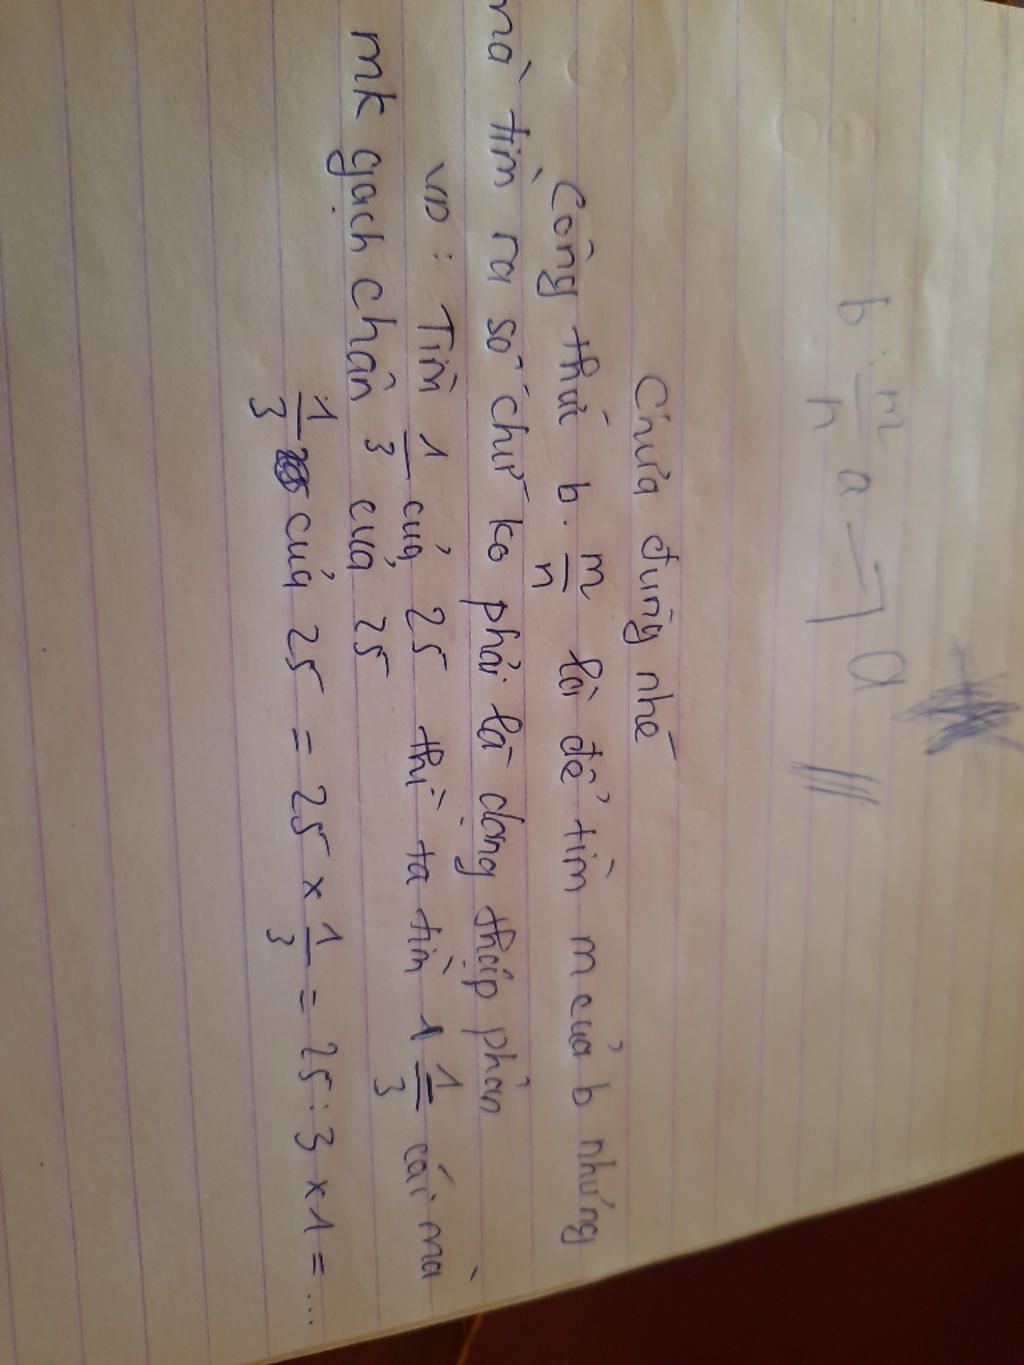 b . m/n a → a
Chưa đúng nhé
Công thức b . m/n là để tìm m của b nhưng
mà tìm ra số chứ ko phải là dạng thập phân
VD : Tìm 1/3 của 25 thì ta tìm 1/3 cái mà
mk gạch chân của 25
1/3 của 25 = 25 x 1/3 = 25 : 3 x 1 = ...